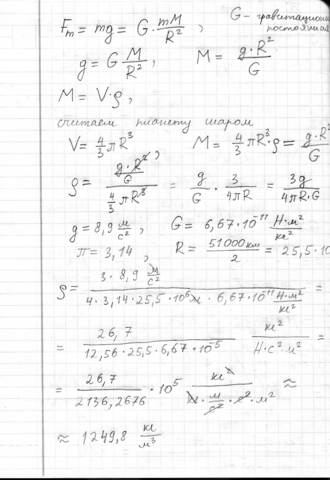 Fт = mg = G · mM/R², G – гравитацион
постоянная
g = G M/R², M = g·R²/G
M = V·ρ,
считаем планету шаром
V = 4/3 πR³, M = 4/3 πR³·ρ = g·R²/G
ρ = (g·R²/G)/(4/3 πR³) = g/G · 3/4πR = 3g/4πR·G
g = 8,9 м/с², G = 6,67·10⁻¹¹ Н·м²/кг²
π = 3,14, R = 51000 км/2 = 25,5·10
ρ = 3·8,9 м/с² / 4·3,14·25,5·10⁶ м · 6,67·10⁻¹¹ Н·м²/кг² =
= 26,7 / 12,56·25,5·6,67·10⁻⁵ кг²/Н·с²·м² =
= 26,7/2136,2676 · 10⁵ кг²/кг·м/с²·с²·м² ≈
≈ 1249,8 кг/м³